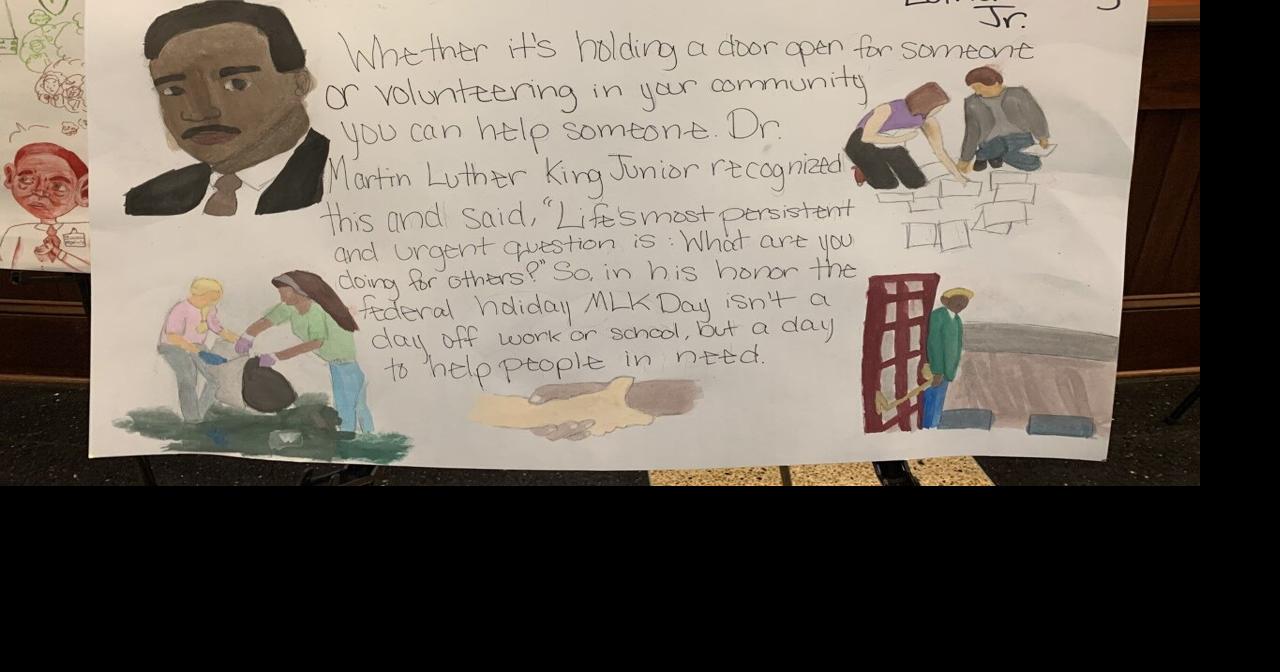 Jr.
Whether it's holding a door open for someone
or volunteering in your community
you can help someone. Dr.
Martin Luther King Junior recognized
this and said, "Life's most persistent
and urgent question is: What are you
doing for others?" So, in his honor the
federal holiday MLK Day isn't a
day off work or school, but a day
to help people in need.